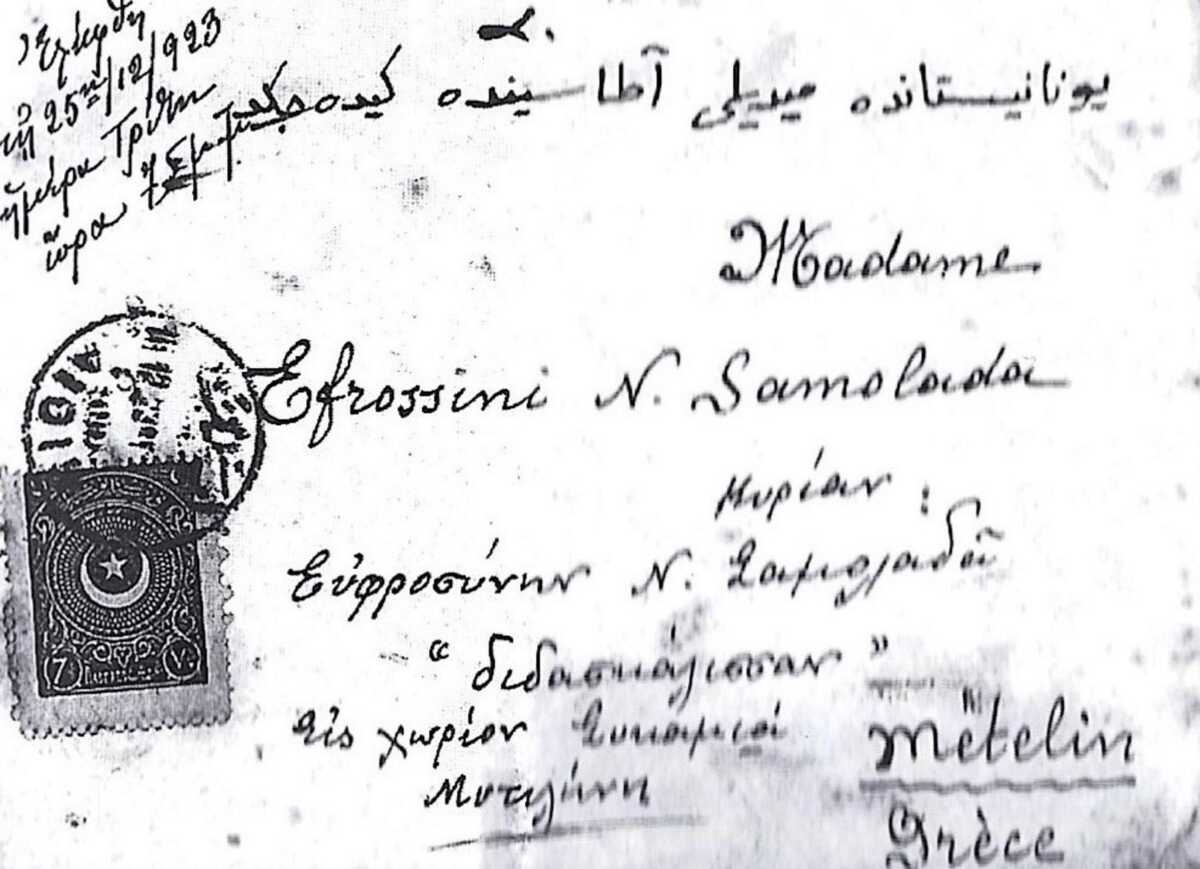 Ἐλήφθη
τῇ 25ῃ/12/923
ἡμέρα Τρίτη
ὥρα 7
يونانيستانده ميديللى آطه‌سينده كيده‌جكدر
Madame
Efrossini N. Samolada
Κυρίαν :
Εὐφροσύνην Ν. Σαμολαδᾶ
“ διδασκάλισσαν ”
Εἰς χωρίον Συκαμιά
Μυτιλήνη
Métélin
Grèce
7